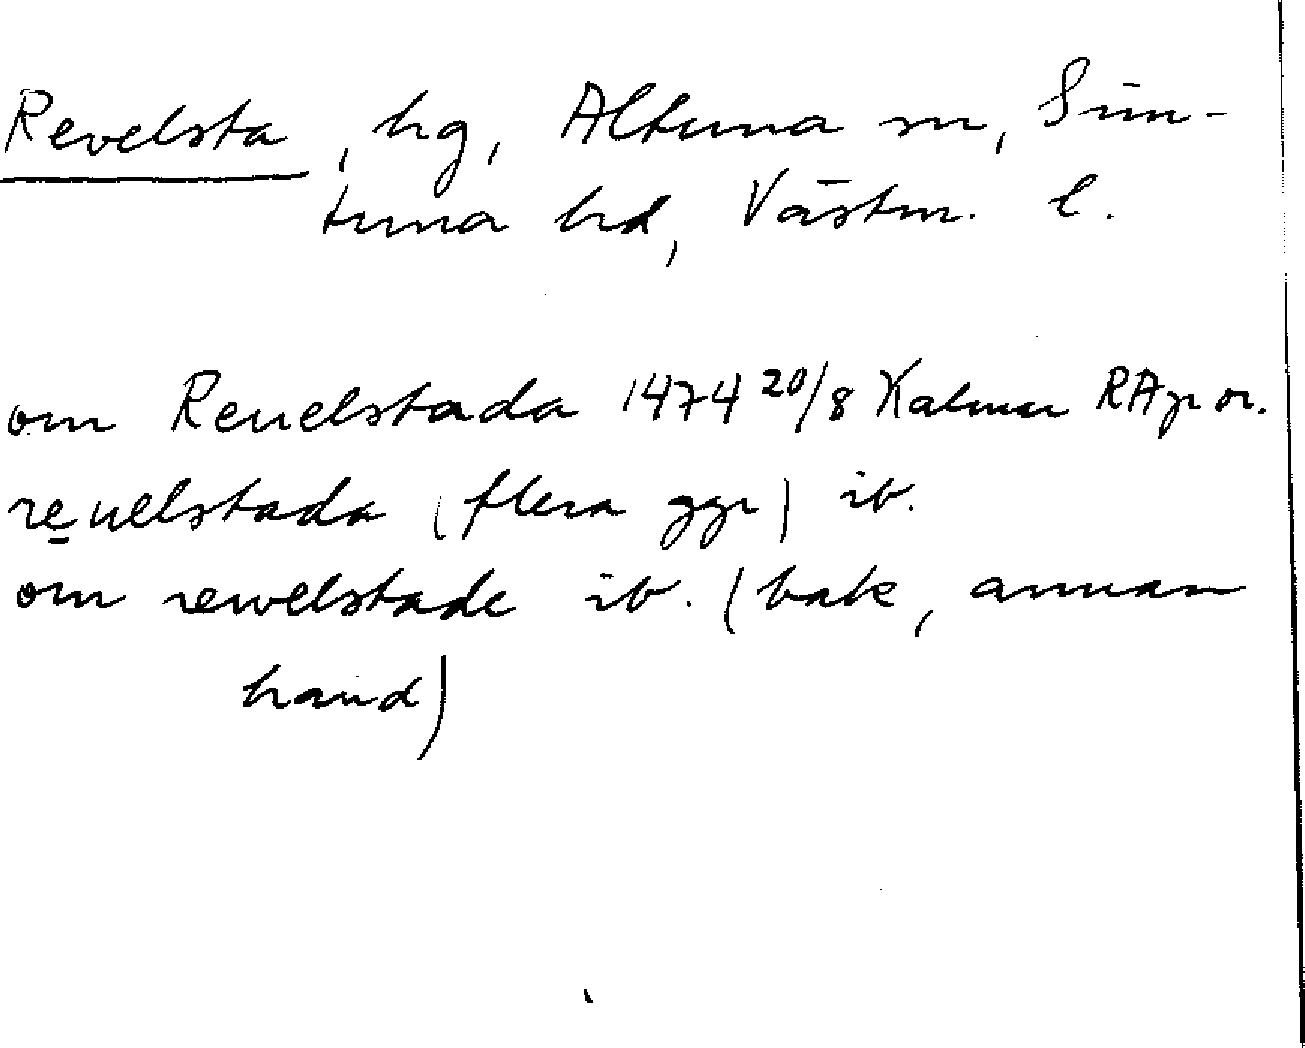 Revelsta, hg, Altuna sn, Sim-
tuna hd, Västm. l.
om Reuelstada 1474 20/8 Kalmar RApor.
reuelstada (flera ggr) ib.
om rewelstade ib. (bak, annan
hand)